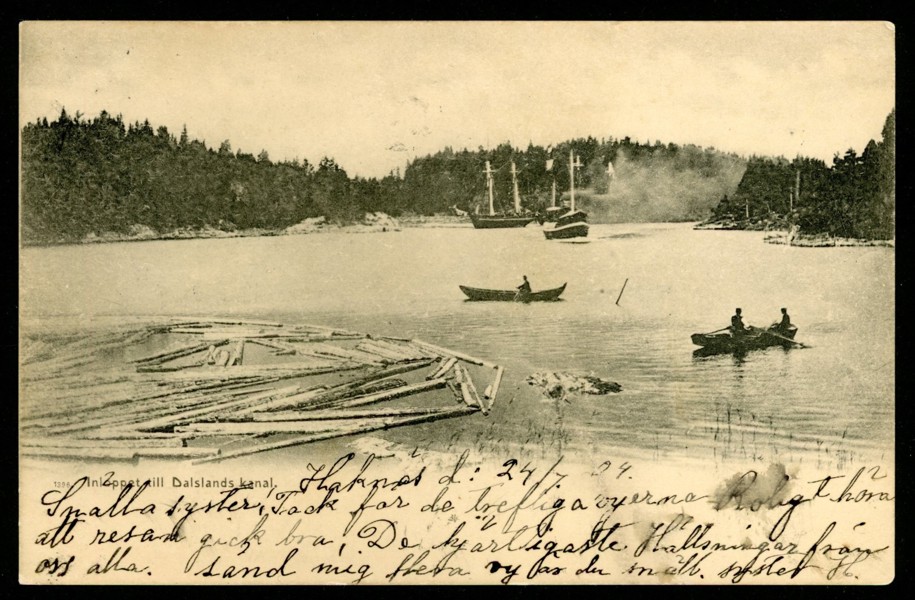 1396 Inloppet till Dalslands kanal.
Håknäs d: 24/7 04.
Snälla syster! Tack för de trefliga vyerna Roligt höra
att resan gick bra! De hjärtligaste Hälsningar från
oss alla. sänd mig flera vyer du snäll. syster H.